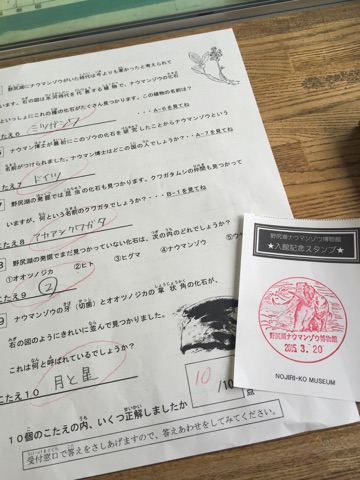 野尻湖にナウマンゾウがいた時代は今よりも寒かったと考えられて
います。右の図は氷河時代を代表する植物で、ナウマンゾウの化石
といっしょにこの種の化石がたくさん見つかります。この植物の名前は?
・・・A-6を見てね
こたえ6 ミツガシワ
ナウマン博士が最初にこのゾウの化石を研究したことからナウマンゾウという
名前がつけられました。ナウマン博士はどこの国の人でしょうか?・・A-7を見てね
こたえ7 ドイツ
野尻湖の発掘では昆虫の化石も見つかります。クワガタムシの仲間も見つかって
いますが、何という名前のクワガタでしょうか?・・・B-1を見てね
こたえ8 アカアシクワガタ
野尻湖の発掘でまだ見つかっていない化石は、次の内のどれでしょうか?
①オオツノジカ ②ヒト ③ヒグマ ④ナウマンゾウ
こたえ9 ②
ナウマンゾウの牙(切歯)とオオツノジカの掌状角の化石が、
右の図のようにきれいに並んで見つかりました。
これは何と呼ばれているでしょうか?
こたえ10 月と星
10個のこたえの内、いくつ正解しましたか
10
/10点
受付窓口で答えをさしあげますので、答えあわせをしてみてください。
野尻湖ナウマンゾウ博物館
★入館記念スタンプ★
野尻湖ナウマンゾウ博物館
2015.3.20
NOJIRI-KO MUSEUM